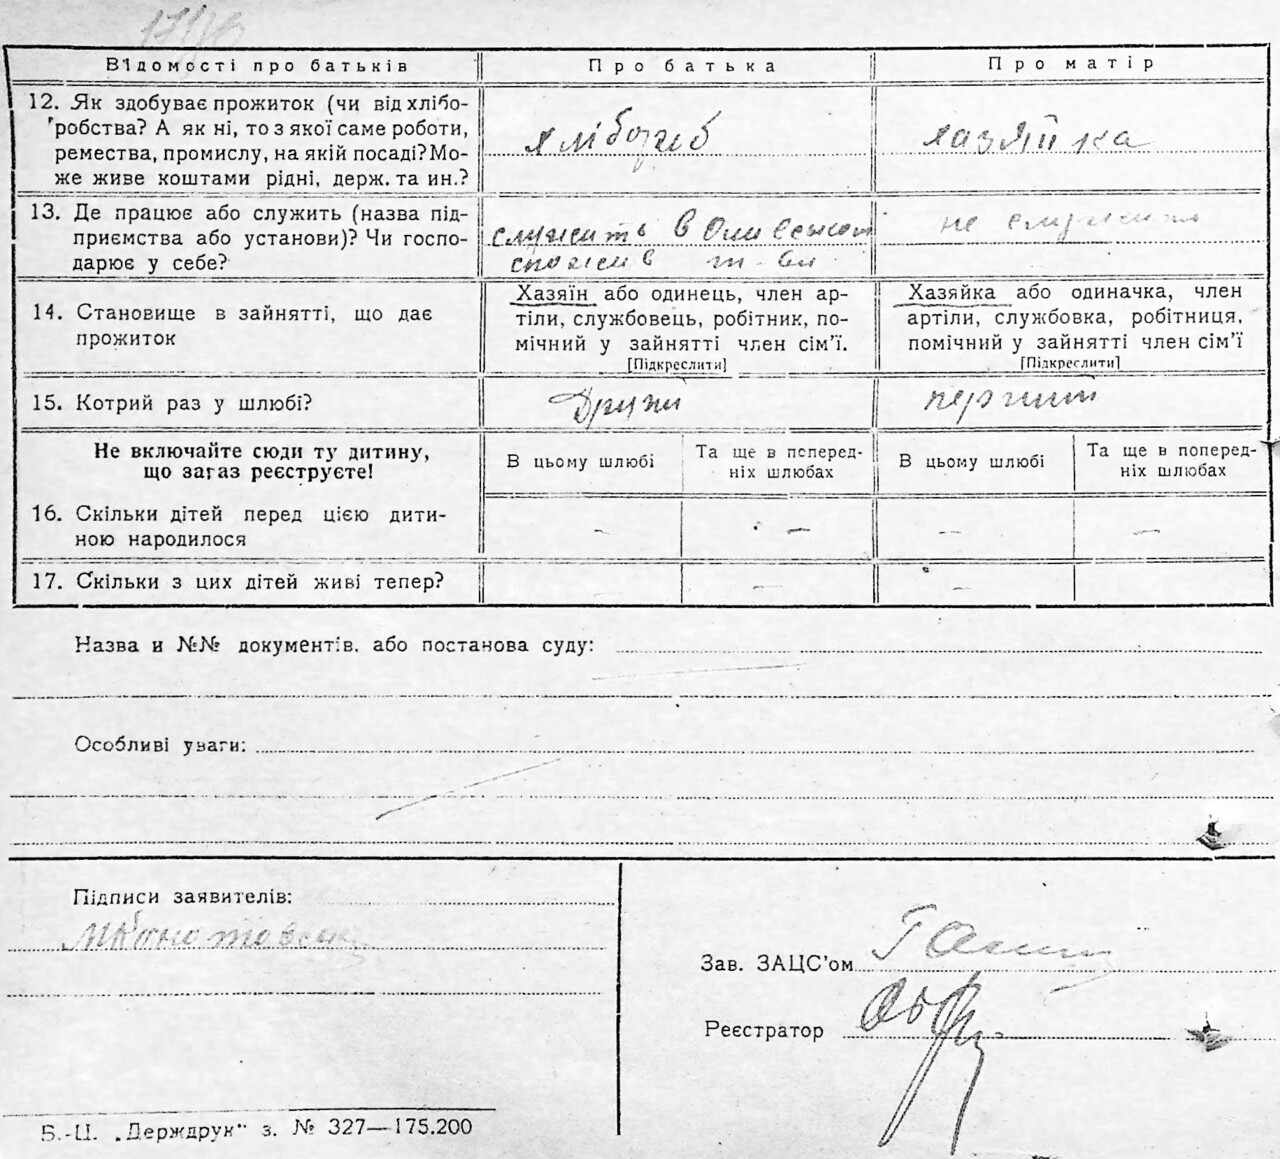 Відомості про батьків Про батька Про матір
12. Як здобуває прожиток (чи від хлібо-
робства? А як ні, то з якої саме роботи,
ремества, промислу, на якій посаді? Мо-
же живе коштами рідні, держ. та ин.?
хлібороб
хазяйка
13. Де працює або служить (назва під-
приємства або установи)? Чи госпо-
дарює у себе?
служить в
спожив т-ві
не служить
14. Становище в зайнятті, що дає
прожиток
Хазяїн або одинець, член ар-
тіли, службовець, робітник, по-
мічний у зайнятті член сім'ї.
[Підкреслити]
Хазяйка або одиначка, член
артіли, службовка, робітниця,
помічний у зайнятті член сім'ї
[Підкреслити]
15. Котрий раз у шлюбі?
Другий
перший
Не включайте сюди ту дитину,
що загаз реєструєте!
В цьому шлюбі
Та ще в поперед-
ніх шлюбах
В цьому шлюбі
Та ще в поперед-
ніх шлюбах
16. Скільки дітей перед цією дити-
ною народилося
– – – –
17. Скільки з цих дітей живі тепер?
– –
Назва и №№ документів. або постанова суду:
Особливі уваги:
Підписи заявителів:
Зав. ЗАЦС'ом
Реєстратор
Б.-Ц. „Держдрук" з. № 327—175.200